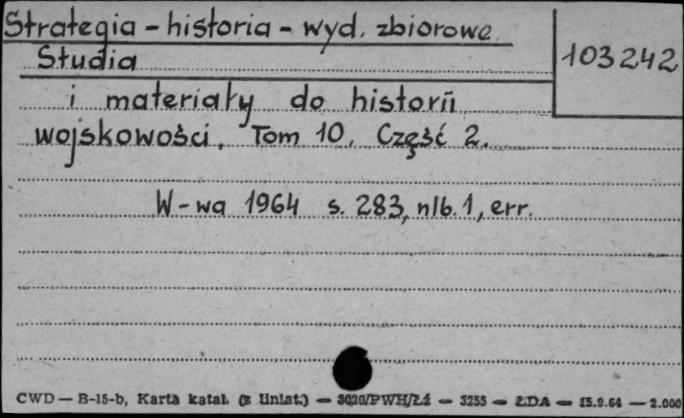 Strategia - historia - wyd. zbiorowe
103242
Studia
i materiały do historii
wojskowości, Tom 10, Część 2.
W-wa 1964 s. 283, nlb. 1, err.
CWD — B-15-b, Karta katal. (z liniat.) — /PWH/Łź — 3255 — ŁDA — 15.9.64 — 2.000